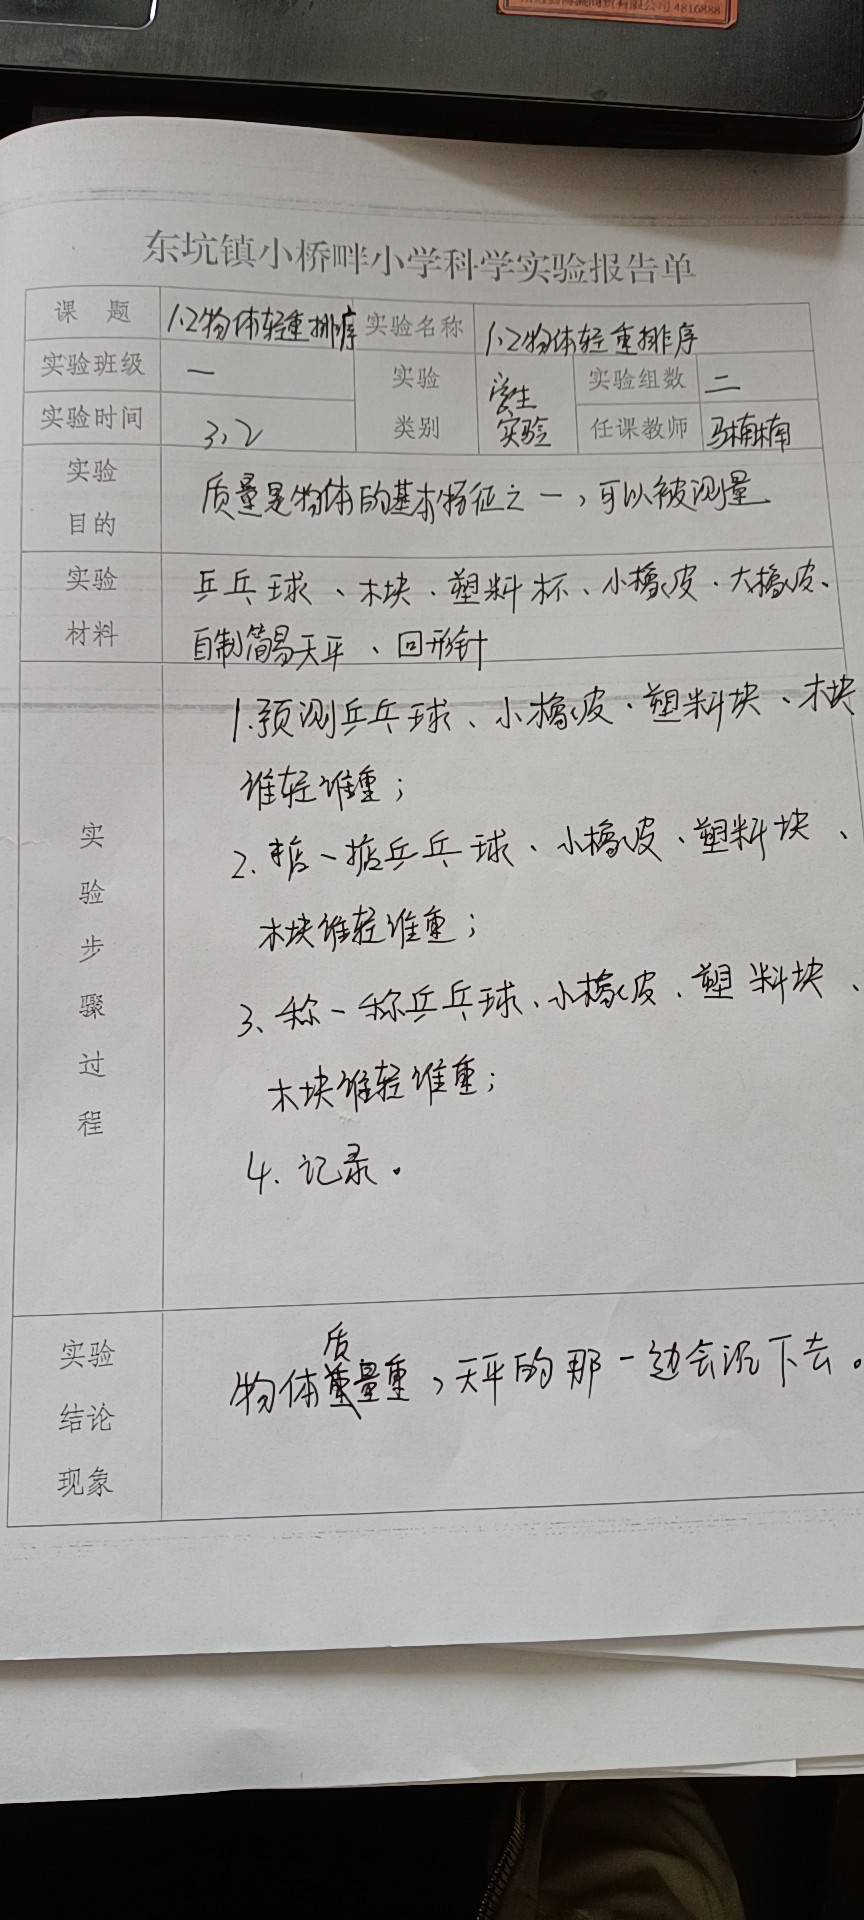 4816888
东坑镇小桥畔小学科学实验报告单
课 题 1.2物体轻重排序 实验名称 1.2物体轻重排序
实验班级 一 实验类别 学生实验 实验组数 二
实验时间 3.2 任课教师 马楠楠
实验目的 质量是物体的基本特征之一，可以被测量
实验材料 乒乓球、木块、塑料杯、小橡皮、大橡皮、
自制简易天平、回形针
实验步骤过程
1.预测乒乓球、小橡皮、塑料块、木块
谁轻谁重；
2.掂一掂乒乓球、小橡皮、塑料块、
木块谁轻谁重；
3、称一称乒乓球、小橡皮、塑料块、
木块谁轻谁重；
4.记录。
实验结论现象
物体质量重，天平的那一边会沉下去。